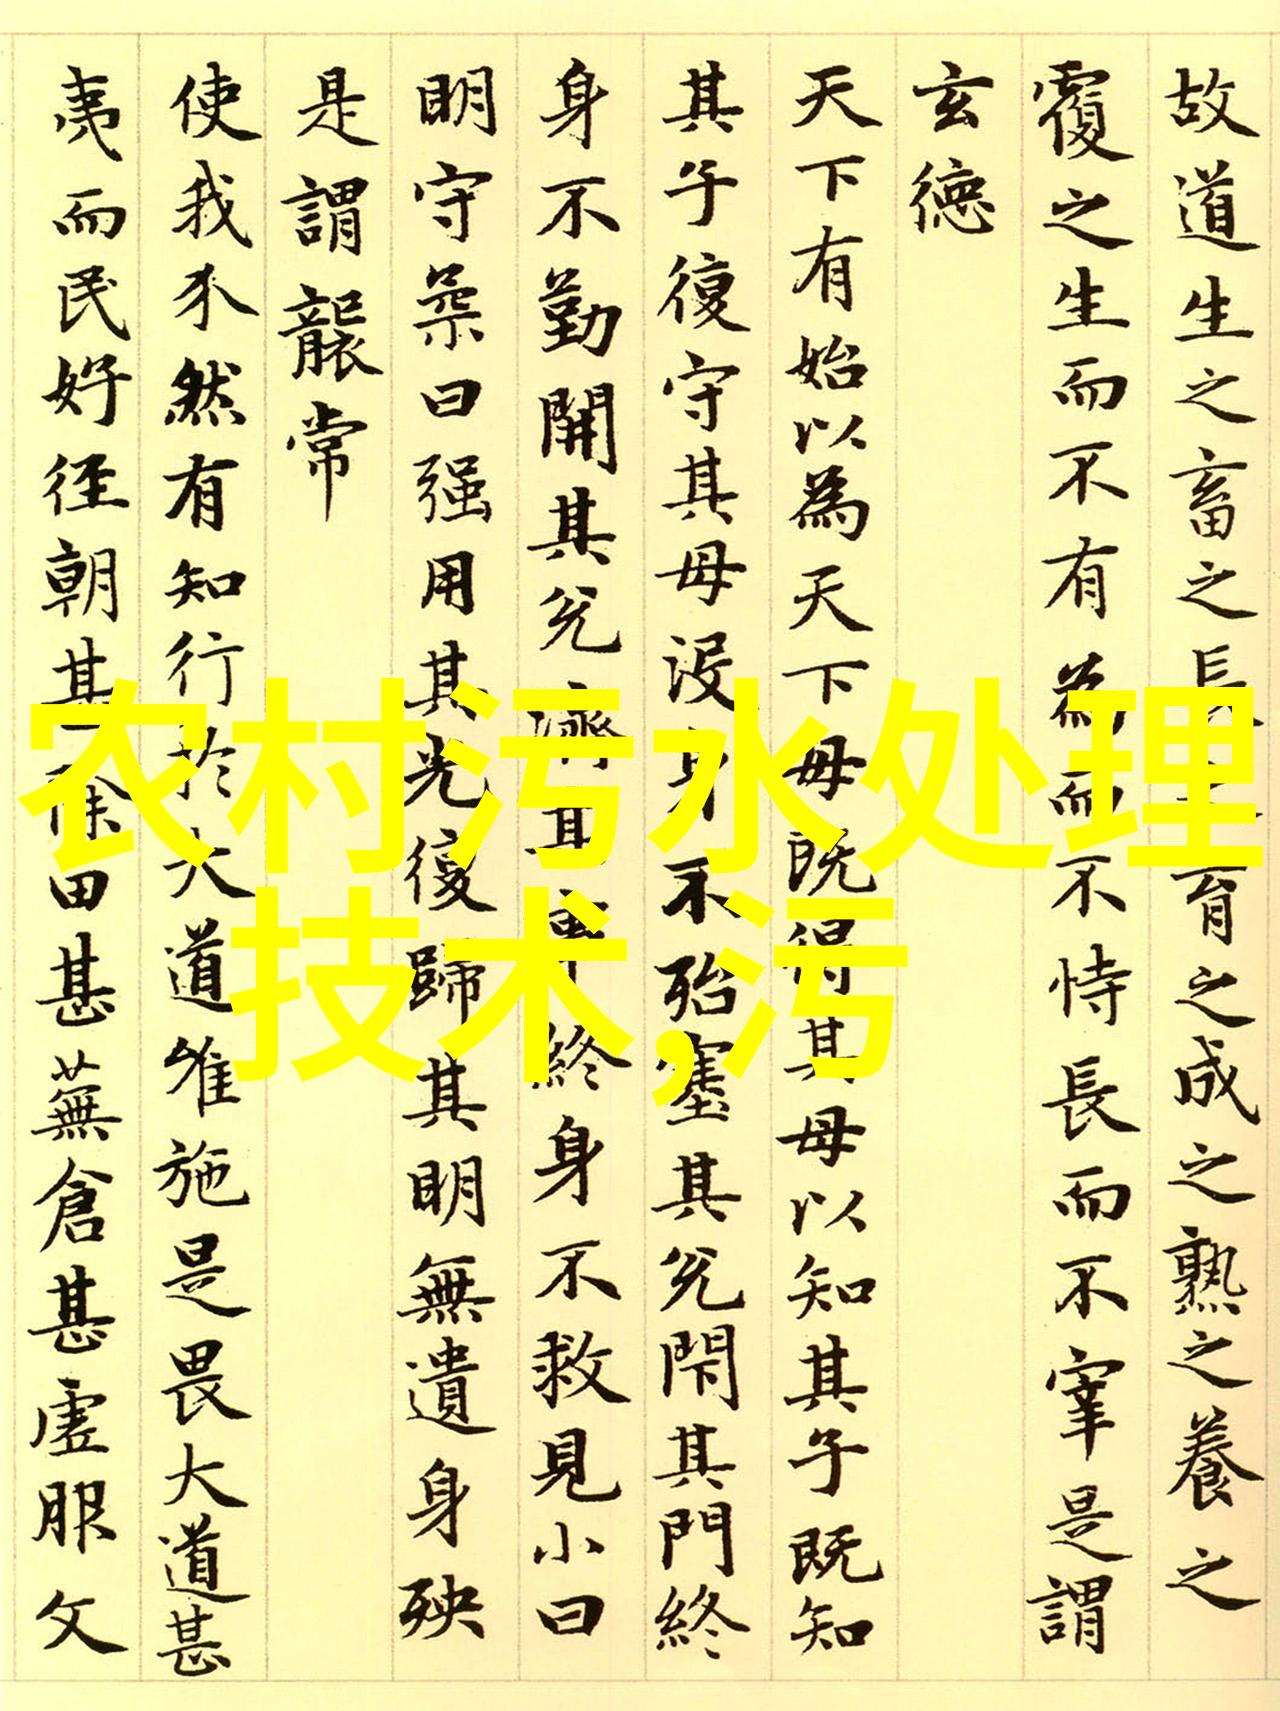 故道生之畜之長之育之成之熟之養之
覆之生而不有為而不恃長而不宰是謂
玄德
天下有始以為天下母既得其母以知其子既知
其子復守其母没身不殆塞其兌閇其門終
身不勤開其兌濟其事終身不救見小曰
明守柔曰强用其光復歸其明無遺身殃
是謂襲常
使我介然有知行於大道唯施是畏大道甚
夷而民好徑朝甚徐田甚蕪倉甚虛服文
农村污水处理
技术,污